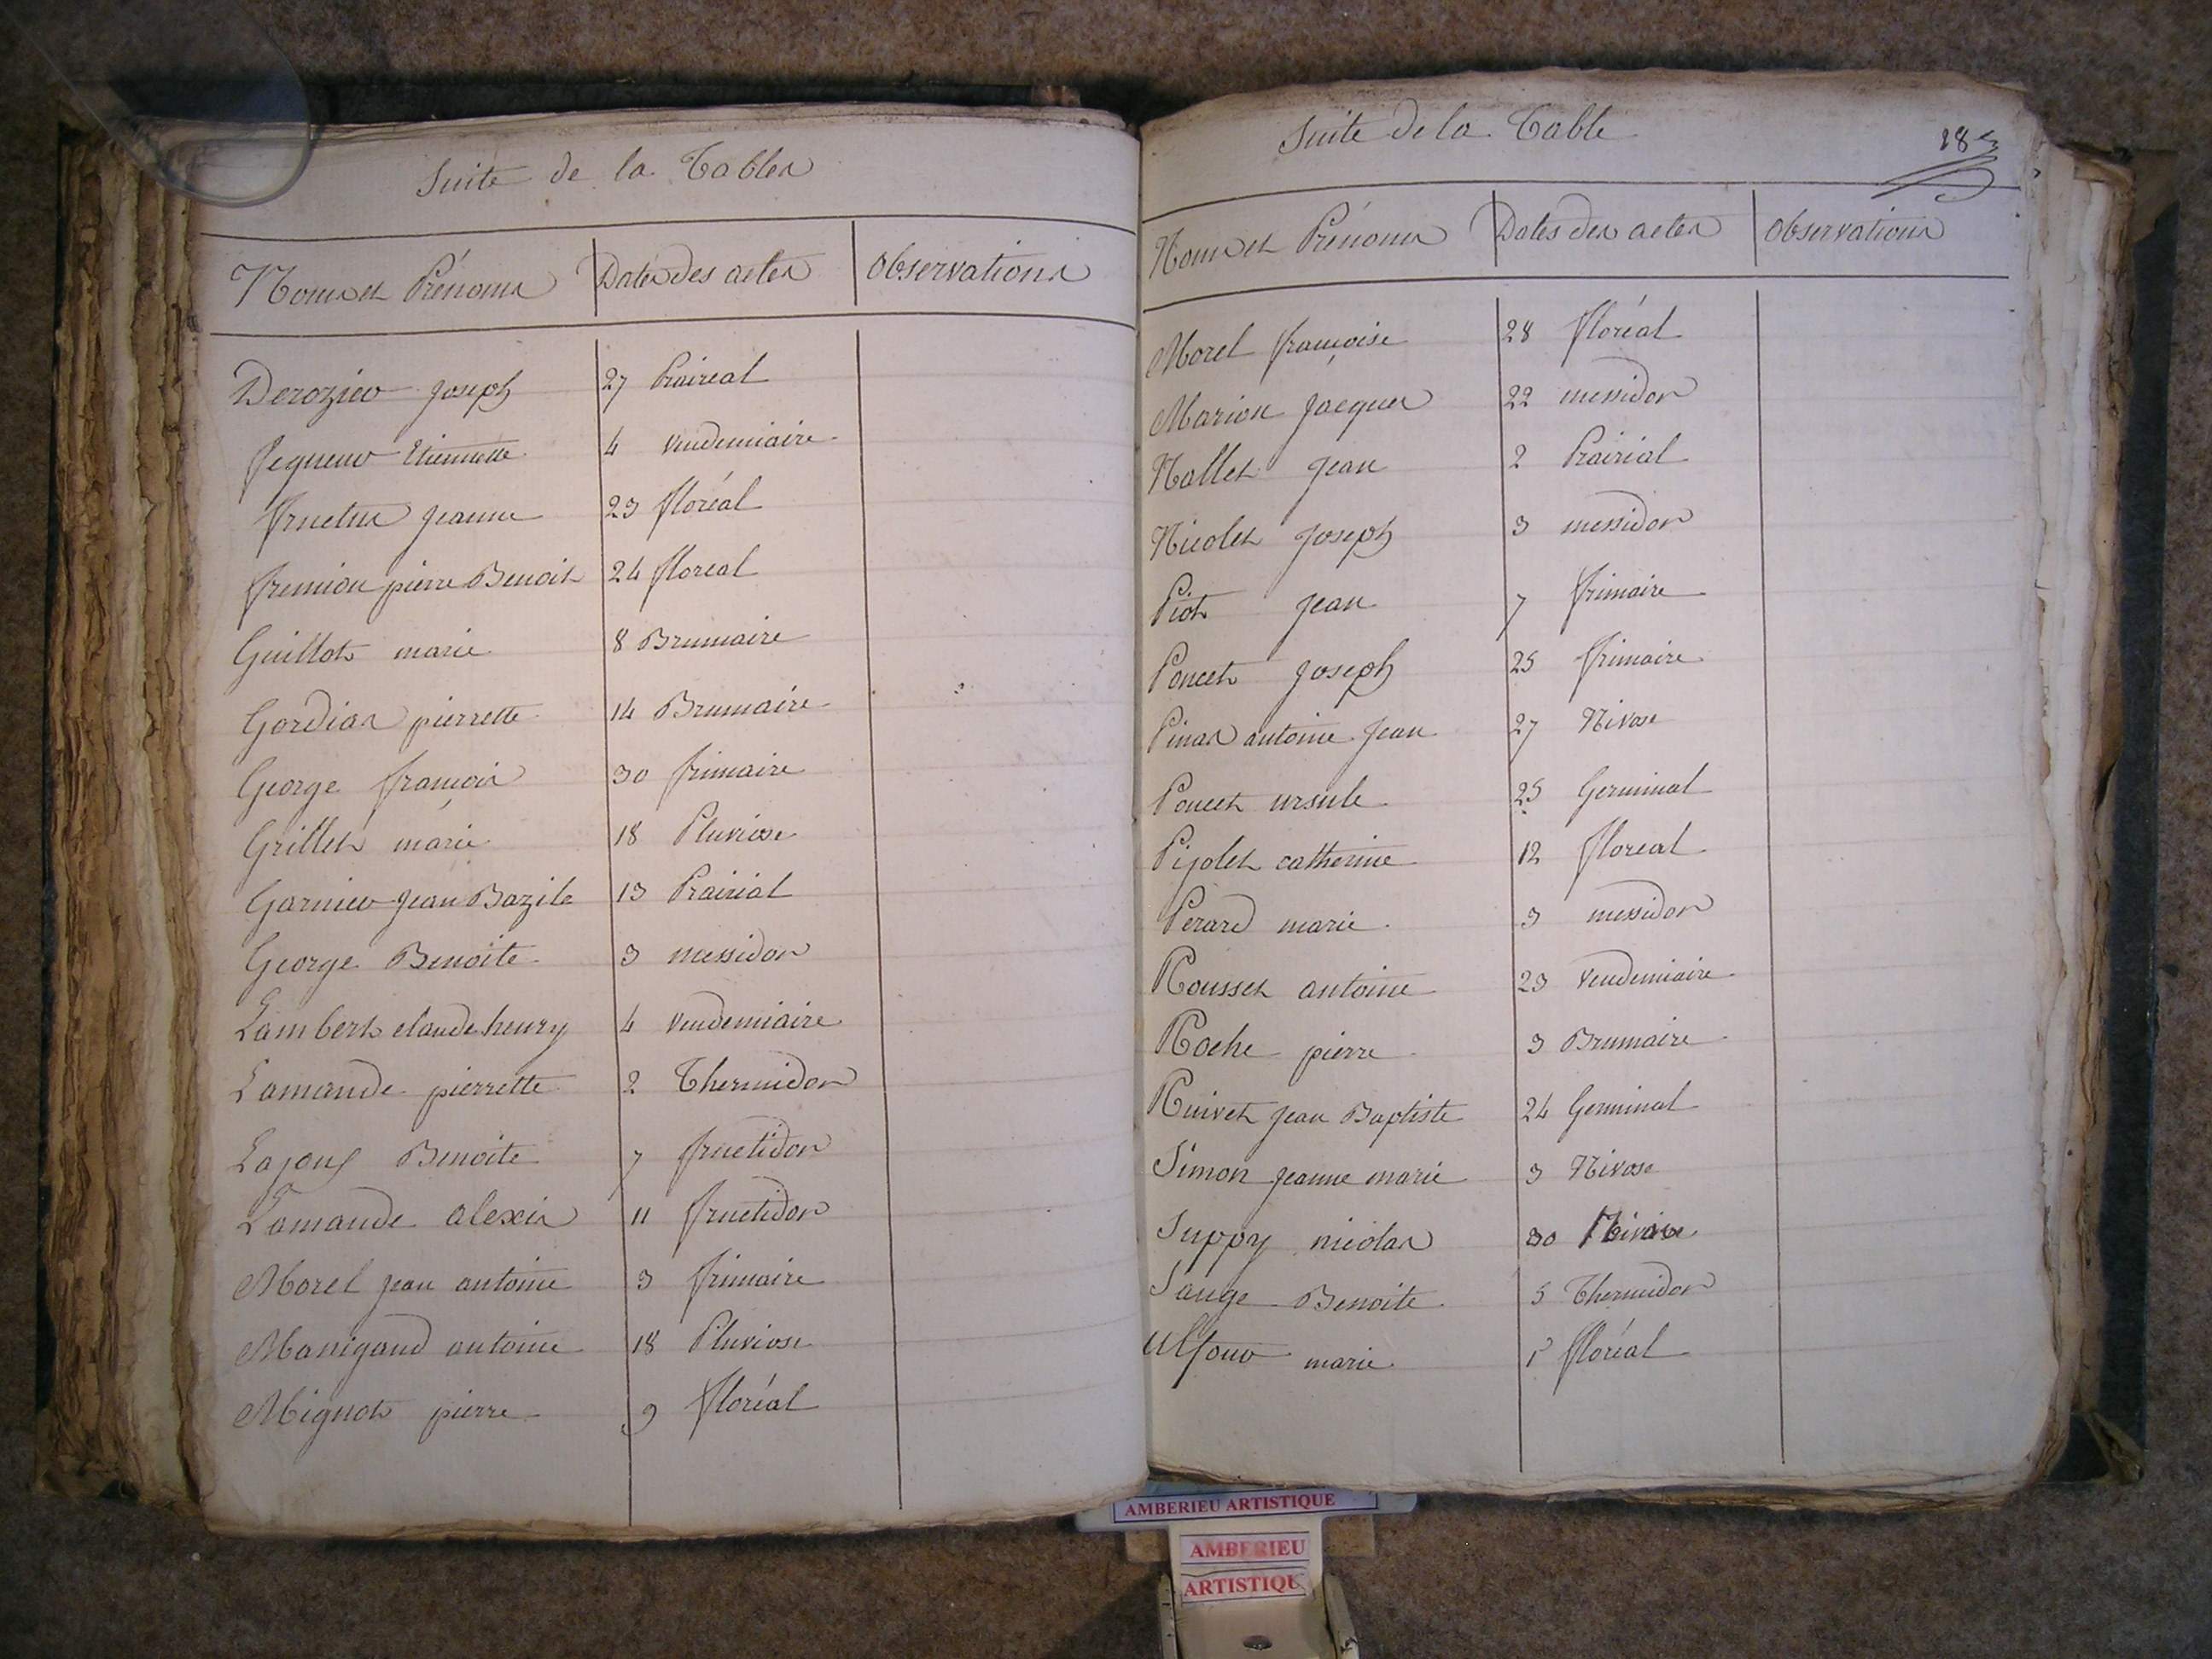 Suite de la Table
Noms et Prénoms Dates des actes Observations
Derozier Joseph 27 Prairéal
Jequeur Etiennette 4 Vendemiaire
fructus Jeanne 23 floréal
fremion pierre Benoit 24 floreal
Guillot marie 8 Brumaire
Gordias pierrette 14 Brumaire
George françois 30 frimaire
Grillet marie 18 Pluviose
Garnier Jean Bazile 13 Prairial
George Benoite 3 messidor
Lambert claude henry 4 Vendemiaire
Lamande pierrette 2 Thermidor
Benoite 7 fructidor
Lamande alexis 11 fructidor
Morel jean antoine 3 frimaire
Manigand antoine 18 Pluviose
Mignot pierre 9 floréal
Suite de la Table
Noms et Prénoms Dates des actes Observations
Morel françoise 28 floréal
Marion Jacques 22 messidor
Nallet Jean 2 Prairial
Nicolet Joseph 3 messidor
Piot Jean 7 frimaire
Poncet Joseph 25 frimaire
Pinas antoine Jean 27 Nivose
Poncet ursule 25 Germinal
Pijolet catherine 12 floreal
Perard marie 3 messidor
Rousset antoine 23 Vendemiaire
Roche pierre 3 Brumaire
Ruivet Jean Baptiste 24 Germinal
Simon Jeanne marie 3 Nivose
Suppy nicolas 30 Nivose
Sauge Benoite 5 Thermidor
marie 1er floréal
AMBERIEU ARTISTIQUE
AMBERIEU
ARTISTIQUE